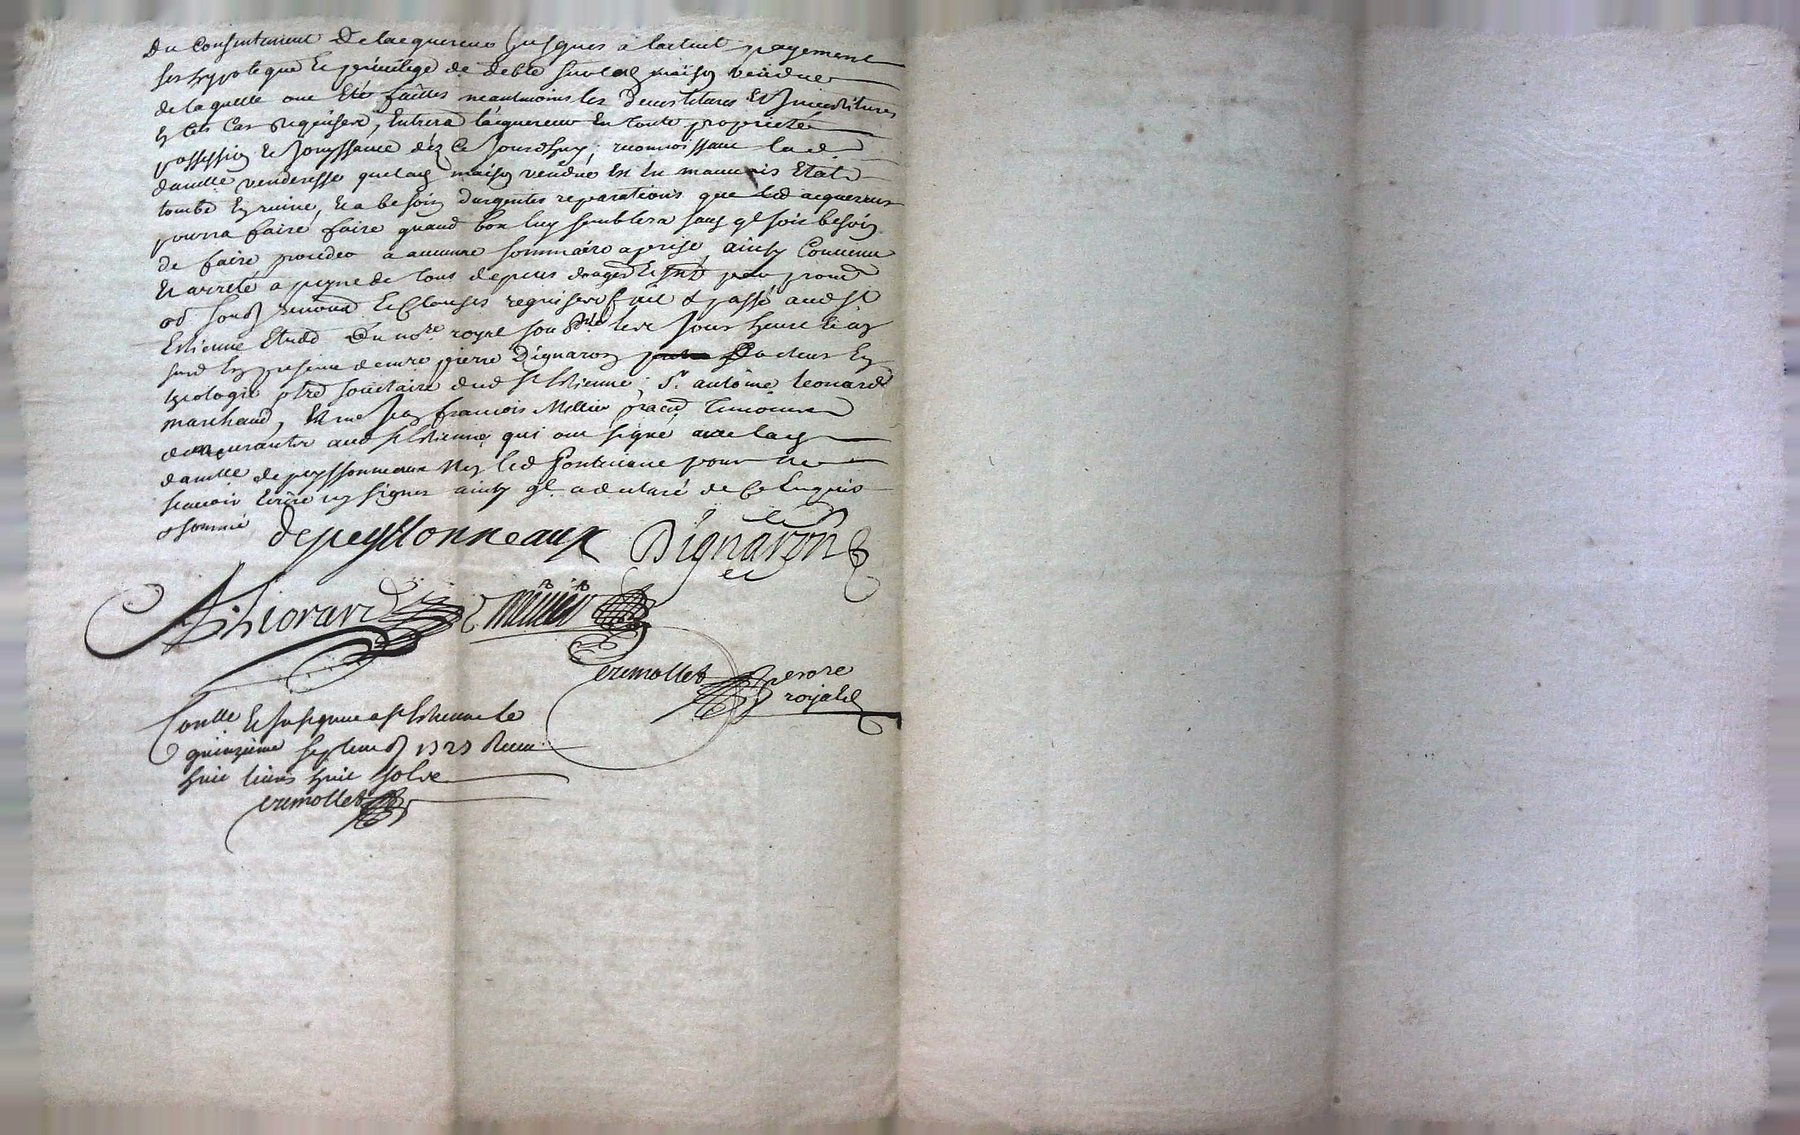 Du Consentement De lacquereur Jusques a lactuel payement
ses hypoteque Et privilege de debte sur lad maison vendue
de laquelle ont Eté faittes neantmoins les devestitures Et Investitures
En tels Cas Requises, Entrera lacquereur En toute proprieté
possession Et Jouyssance dez Ce Jourdhuy, reconnoissant lad
damlle venderesse que lad maison vendue Est En mauvais Etat
tombé En ruine, Et a besoin durgentes reparations que led acquereur
pourra faire faire quand bon luy semblera sans ql soit besoin
de faire proceder a aucune sommaire aprise, ainsy Convenu
Et arreté a peyne de tous depens
renond Et Clauses requises fait & passé aud St
Estienne Etude Du nore royal les Jour heure
presence de mre pierre Dignaron Docteur En
theologie ptre societaire dud St Estienne, Sr antoine Leonard
marchand, Et me Jean françois Mellier pratic temoins
demeurants aud St Estienne qui ont signé avec lad
damlle depeyssonneaux Non led pour ne
scavoir Ecrire ny signer ainsy ql a declaré de Ce Enquis
& sommé
depeyssonneaux Dignaron
A. Liorard mellier
Crimollet nore
royal
Conllé Et Insinué a St Estienne le
quinzieme septemb 1727 Receu
huit livres huit sols
Crimollet